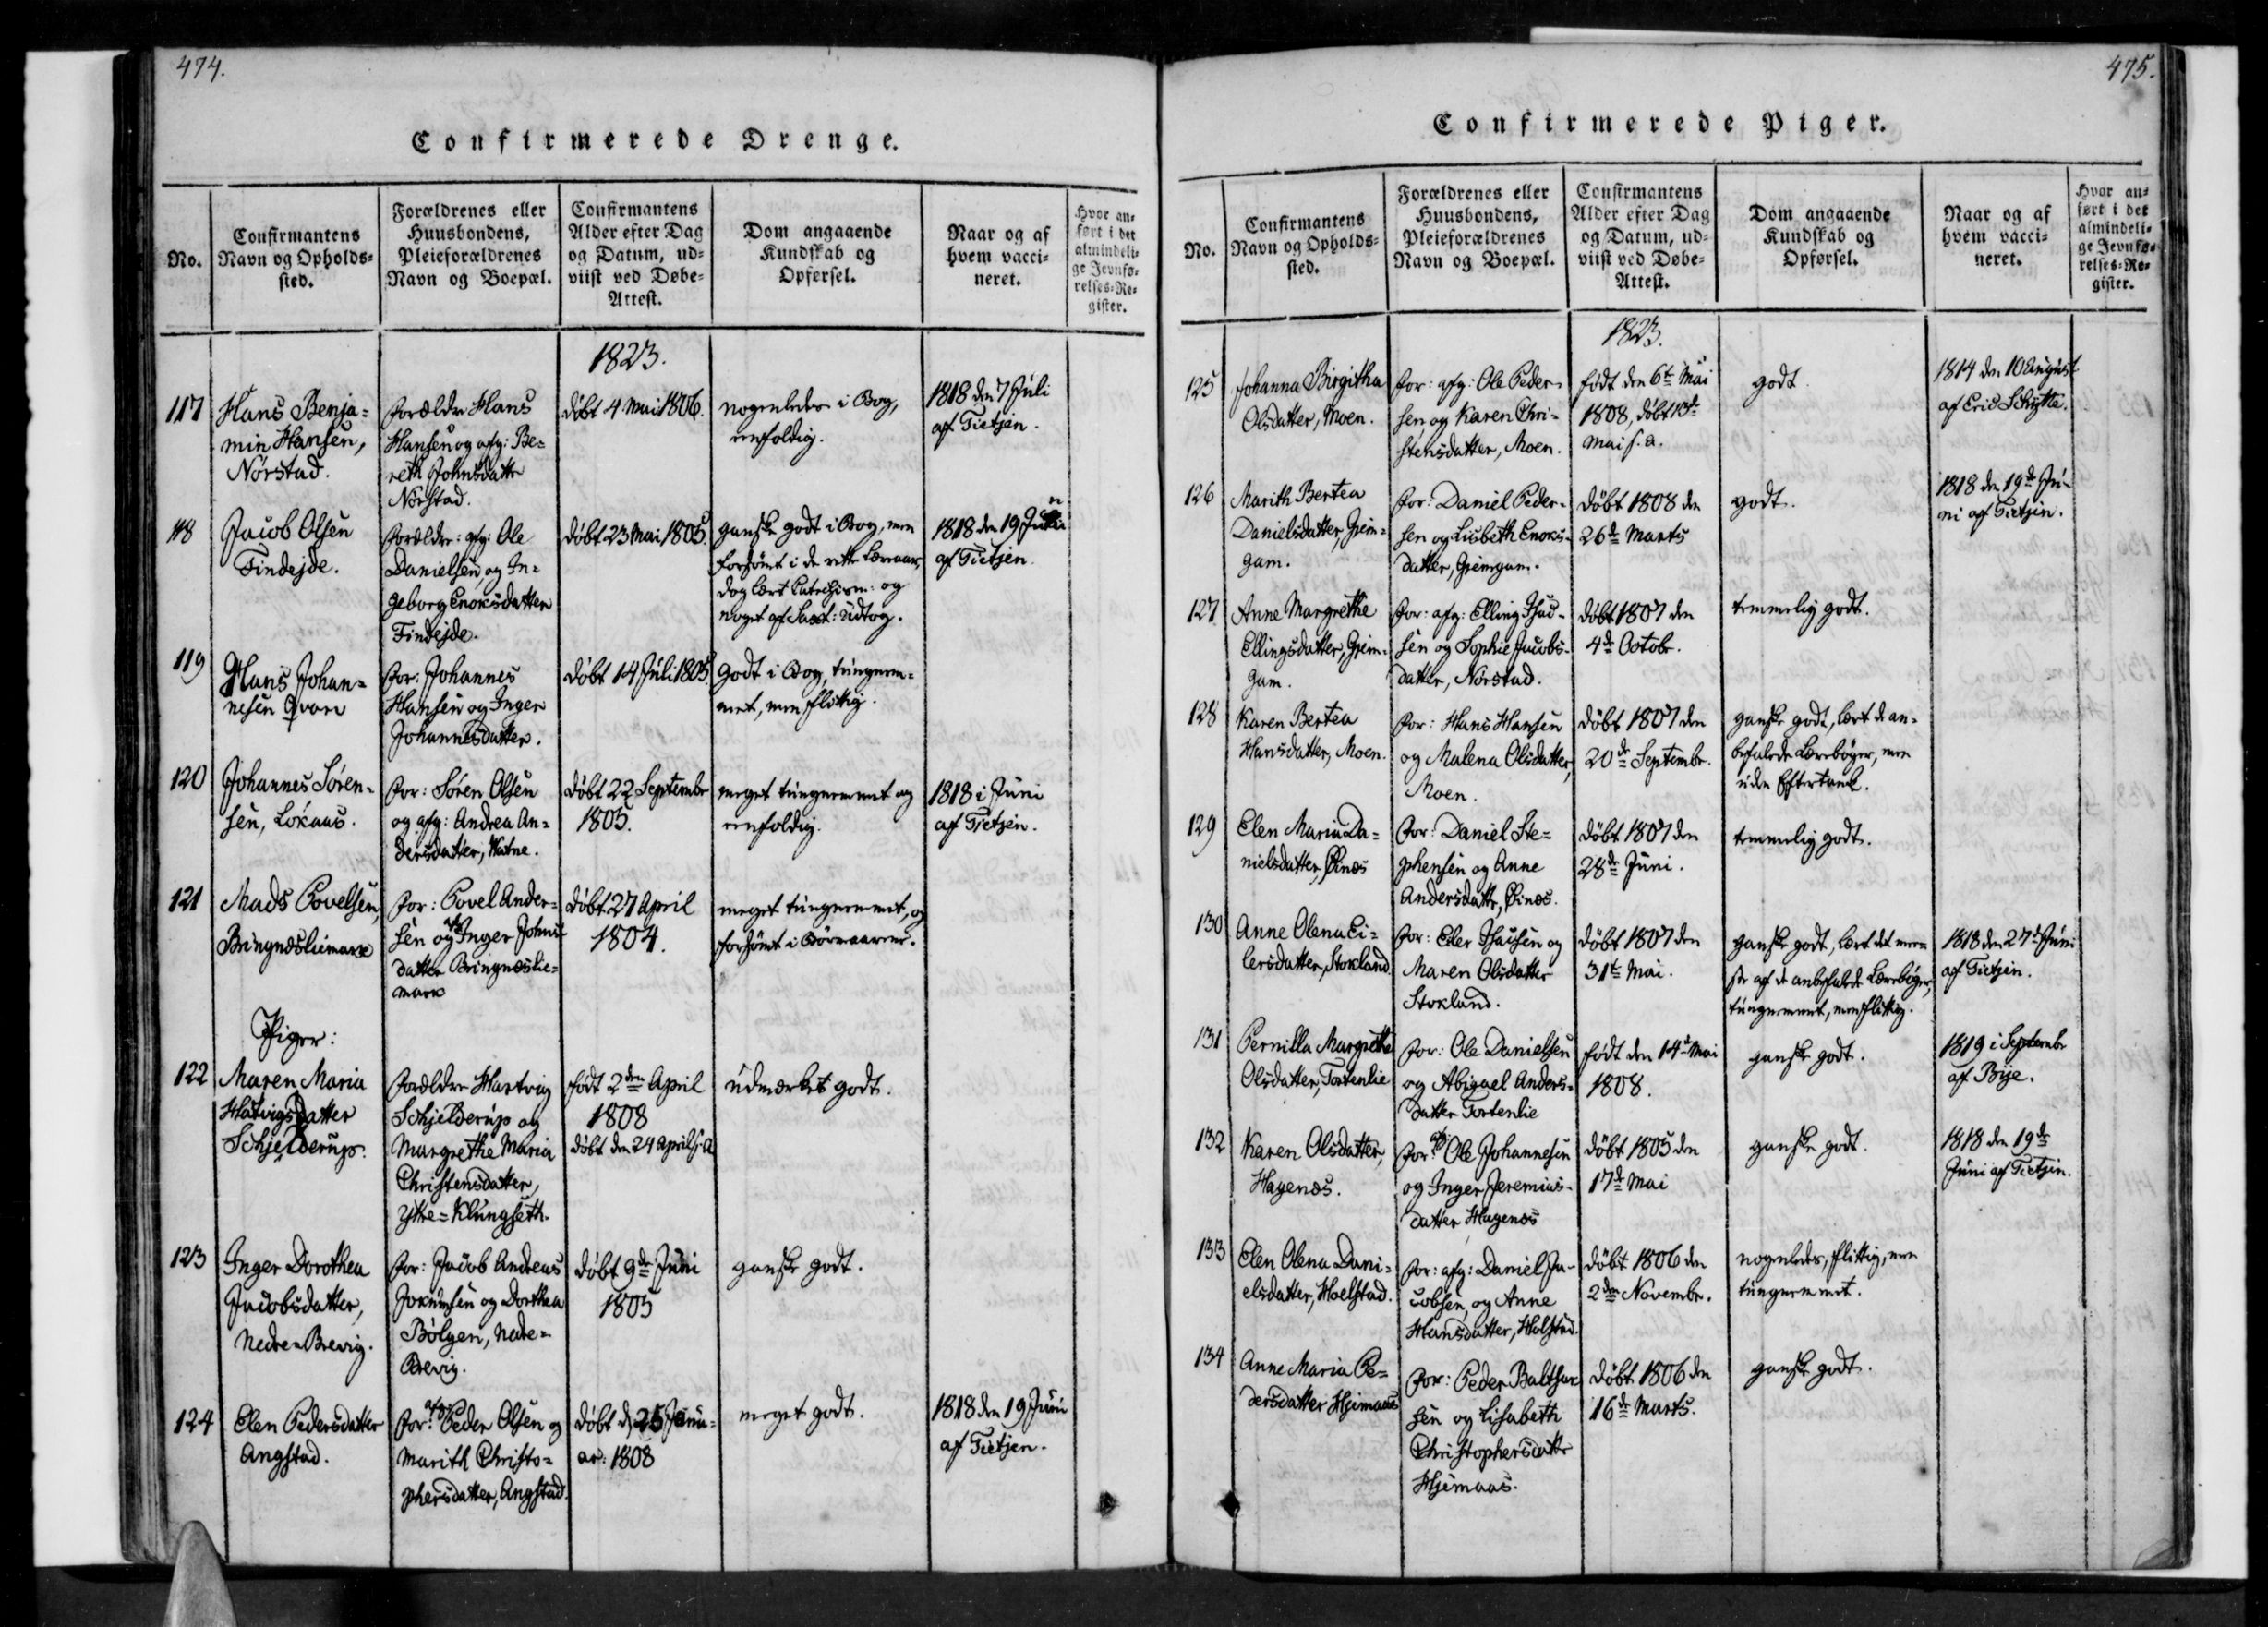 474.
Confirmerede Drenge.
No.
Confirmantens
Navn og Opholds-
sted.
Forældrenes eller
Huusbondens,
Pleieforældrenes
Navn og Boepæl.
Confirmantens
Alder efter Dag
og Datum, ud-
viist ved Døbe-
Attest.
Dom angaaende
Kundskab og
Opførsel.
Naar og af
hvem vacci-
neret.
Hvor an-
ført i det
almindeli-
ge Jevnfø-
relses-Re-
gister.
1823.
117
Hans Benja=
min Hansen,
Nørstad.
Forældre Hans
Hansen og afg: Be=
reth Johnsdatter
Nørstad.
døbt 4 Mai 1806.
nogenledes i Bog,
eenfoldig.
1818 den 7 Juli
af Tietjen.
118
Jacob Olsen
Findejde.
Forældre: afg: Ole
Danielsen, og In=
geborg Enoksdatter
Findejde.
døbt 23 Mai 1805.
ganske godt i Bog, men
forsømt i de rette Læreaar,
dog lært Catechism: og
noget af Saxt: Udtog.
1818 den 19 Juni
af Tietjen.
119
Hans Johan=
nesen Qvare
For: Johannes
Hansen og Inger
Johannesdatter.
døbt 14 Juli 1805.
godt i Bog, tungnem=
met, men flittig.
120
Johannes Søren-
sen, Lokaas.
For: Søren Olsen
og afg: Andrea An=
dersdatter, Watne.
døbt 22 Septembr
1805.
meget tungnemmet og
eenfoldig.
1818 i Juni
af Tietjen.
121
Mads Povelsen,
Bringnæsliemark
For: Povel Ander=
sen og afg Inger Johns=
datter Bringnæslie=
mark
døbt 27 April
1804.
meget tungnemmet, og
forsømt i Børneaarene.
Piger:
122
Maren Maria
Hartvigsdatter
Schjelderup.
Forældre Hartvig
Schjelderup og
Margrethe Maria
Christensdatter,
Ytre=Klungseth.
født 2den April
1808
døbt den 24 April s. A
udmærket godt.
123
Inger Dorothea
Jacobsdatter,
Nedre=Brevig.
For: Jacob Andreas
Jokumsen og Dorthea
Bølgen, Nedre=
Brevig.
døbt 9de Juni
1805
ganske godt.
124
Elen Pedersdatter
Angstad.
For: afg: Peder Olsen og
Marith Christo=
phersdatter, Angstad.
døbt d. 25 Janu-
ar: 1808
meget godt.
1818 den 19 Juni
af Tietjen.
475.
Confirmerede Piger.
No.
Confirmantens
Navn og Opholds-
sted.
Forældrenes eller
Huusbondens,
Pleieforældrenes
Navn og Boepæl.
Confirmantens
Alder efter Dag
og Datum, ud-
viist ved Døbe-
Attest.
Dom angaaende
Kundskab og
Opførsel.
Naar og af
hvem vacci-
neret.
Hvor an-
ført i det
almindeli-
ge Jevnfø-
relses-Re-
gister.
1823.
125
Johanna Birgitha
Olsdatter, Moen.
For: afg: Ole Peder-
sen, og Karen Chri-
stensdatter, Moen.
født den 6te Mai
1808, døbt 13de
Mai s. a.
godt.
1814 den 10 August
af Eric Schytte.
126
Marith Bertea
Danielsdatter, Grim=
gam.
For: Daniel Peder-
sen og Lisbeth Enoks-
datter, Grimgam.
døbt 1808 den
26de Marts
godt.
1818 den 19de Ju-
ni af Tietjen.
127
Anne Margrethe
Ellingsdatter, Grim=
gam.
For: afg: Elling Isac-
sen og Sophie Jacobs-
datter, Nørstad.
døbt 1807 den
4de Octobr.
temmelig godt.
128
Karen Bertea
Hansdatter, Moen.
For: Hans Hansen
og Malena Olsdatter,
Moen.
døbt 1807 den
20de Septembr.
ganske godt, lært de an-
befalede Lærebøger, men
uden Eftertank.
129
Elen Maria Da=
nielsdatter, Øinæs
For: Daniel Ste=
phensen og Anne
Andersdatter, Øinæs.
døbt 1807 den
28de Juni.
temmelig godt.
130
Anne Olena Ei=
lersdatter, Stokland.
For: Eler Isacsen og
Maren Olsdatter
Stokland.
døbt 1807 den
31te Mai.
ganske godt, lært det mee-
ste af de anbefalede Lærebøger,
tungnemmet, men flittig.
1818 den 27de Juni
af Tietjen.
131
Pernilla Margrethe
Olsdatter, Tortenlie
For: Ole Danielsen
og Abigael Anders=
datter Tortenlie
født den 14de Mai
1808.
ganske godt.
1819 i Septembr
af Brje.
132
Karen Olsdatter,
Hagenæs.
For: afg: Ole Johannesen
og Inger Jeremias-
datter Hagenæs
døbt 1805 den
17de Mai
ganske godt.
1818 den 19de
Juni af Tietjen.
133
Elen Olena Dani=
elsdatter, Hoelstad.
For: afg: Daniel Ja-
cobsen, og Anne
Hansdatter, Holstad.
døbt 1806 den
2den Novembr.
nogenledes, flittig, men
tungnemmet.
134
Anne Maria Pe=
dersdatter Hjemaas
For: Peder Balthar
sen og Lisabeth
Christophersdatter
Hjemaas.
døbt 1806 den
16de Marts.
ganske godt.